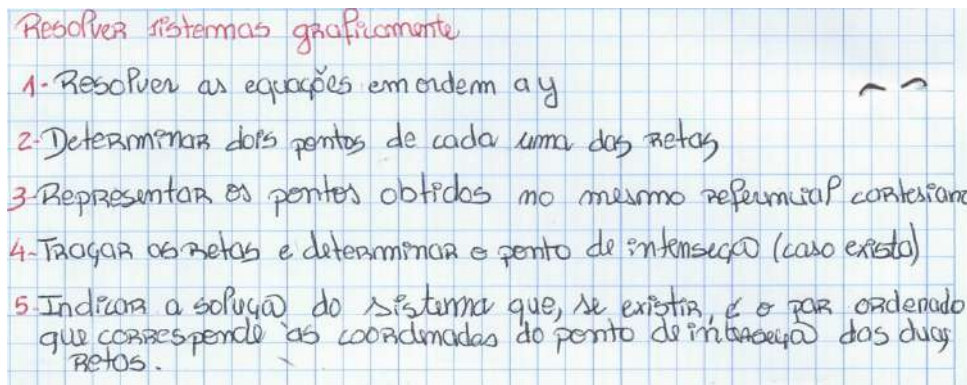 Resolver sistemas graficamente
1- Resolver as equações em ordem a y
2- Determinar dois pontos de cada uma das retas
3- Representar os pontos obtidos no mesmo referencial cartesiano
4- Traçar as retas e determinar o ponto de interseção (caso exista)
5- Indicar a solução do sistema que, se existir, é o par ordenado
que corresponde às coordenadas do ponto de interseção das duas
retas.